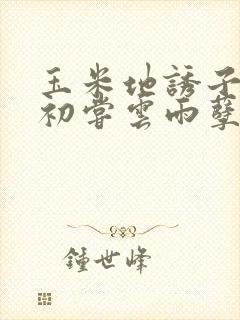 玉米地誘子
初嘗雲雨孽
鍾世峰